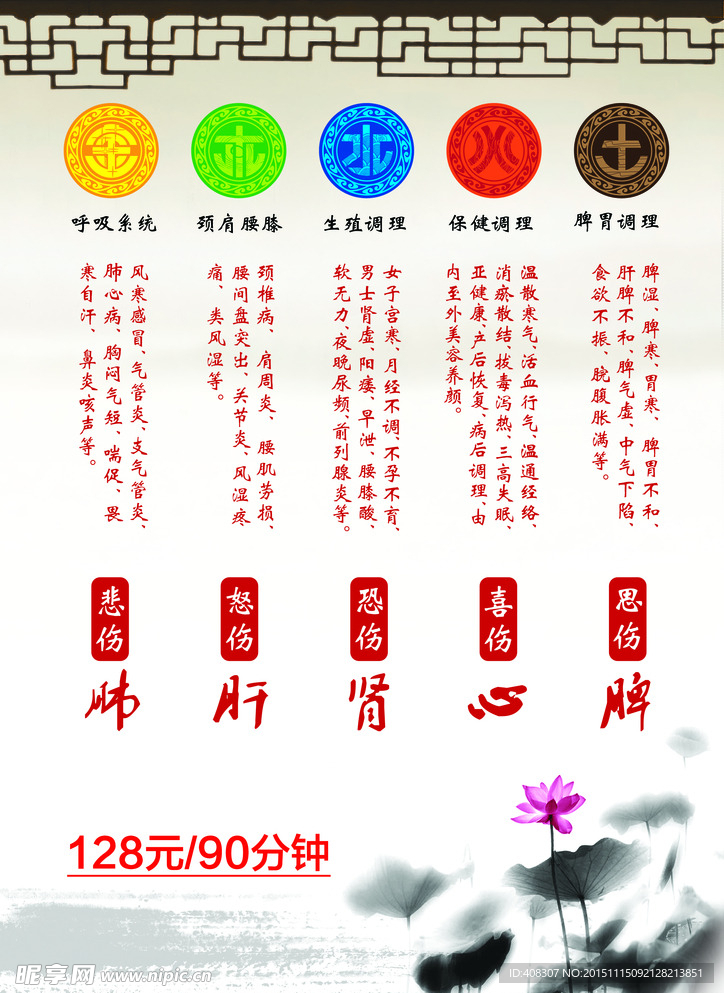 金
木
水
火
土
呼吸系统
颈肩腰膝
生殖调理
保健调理
脾胃调理
风寒感冒、气管炎、支气管炎、
肺心病、胸闷气短、喘促、畏
寒自汗、鼻炎咳声等。
颈椎病、肩周炎、腰肌劳损、
腰间盘突出、关节炎、风湿疼
痛、类风湿等。
女子宫寒、月经不调、不孕不育、
男士肾虚、阳痿、早泄、腰膝酸、
软无力、夜晚尿频、前列腺炎等。
温散寒气、活血行气、温通经络、
消瘀散结、拔毒泻热、三高失眠、
亚健康、产后恢复、病后调理、由
内至外美容养颜。
脾湿、脾寒、胃寒、脾胃不和、
肝脾不和、脾气虚、中气下陷、
食欲不振、脘腹胀满等。
悲伤
怒伤
恐伤
喜伤
思伤
肺
肝
肾
心
脾
128元/90分钟
昵享网 www.nipic.cn
ID:408307 NO:20151115092128213851